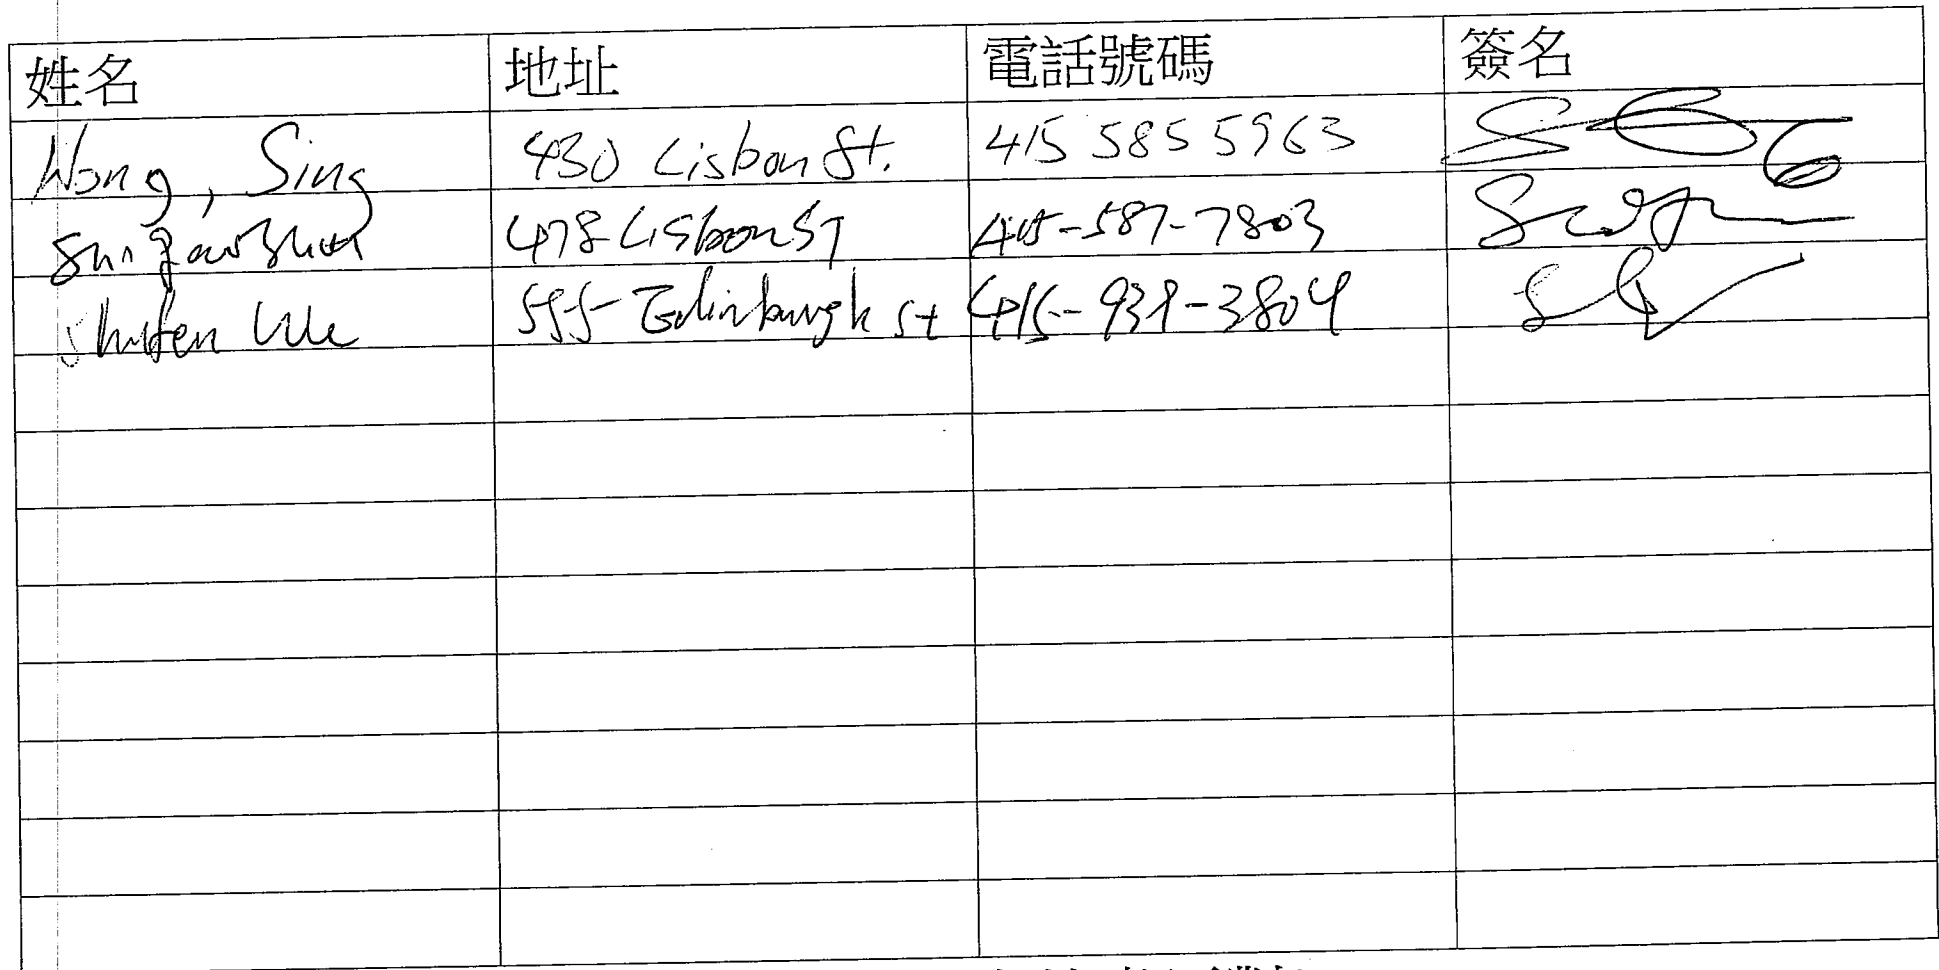 姓名 地址 電話號碼 簽名
Wong, Sing 430 Lisbon St. 415 585 5963
478 Lisbon ST 415-587-7803
Shufen Wu 595 Edinburgh St 415-939-3804